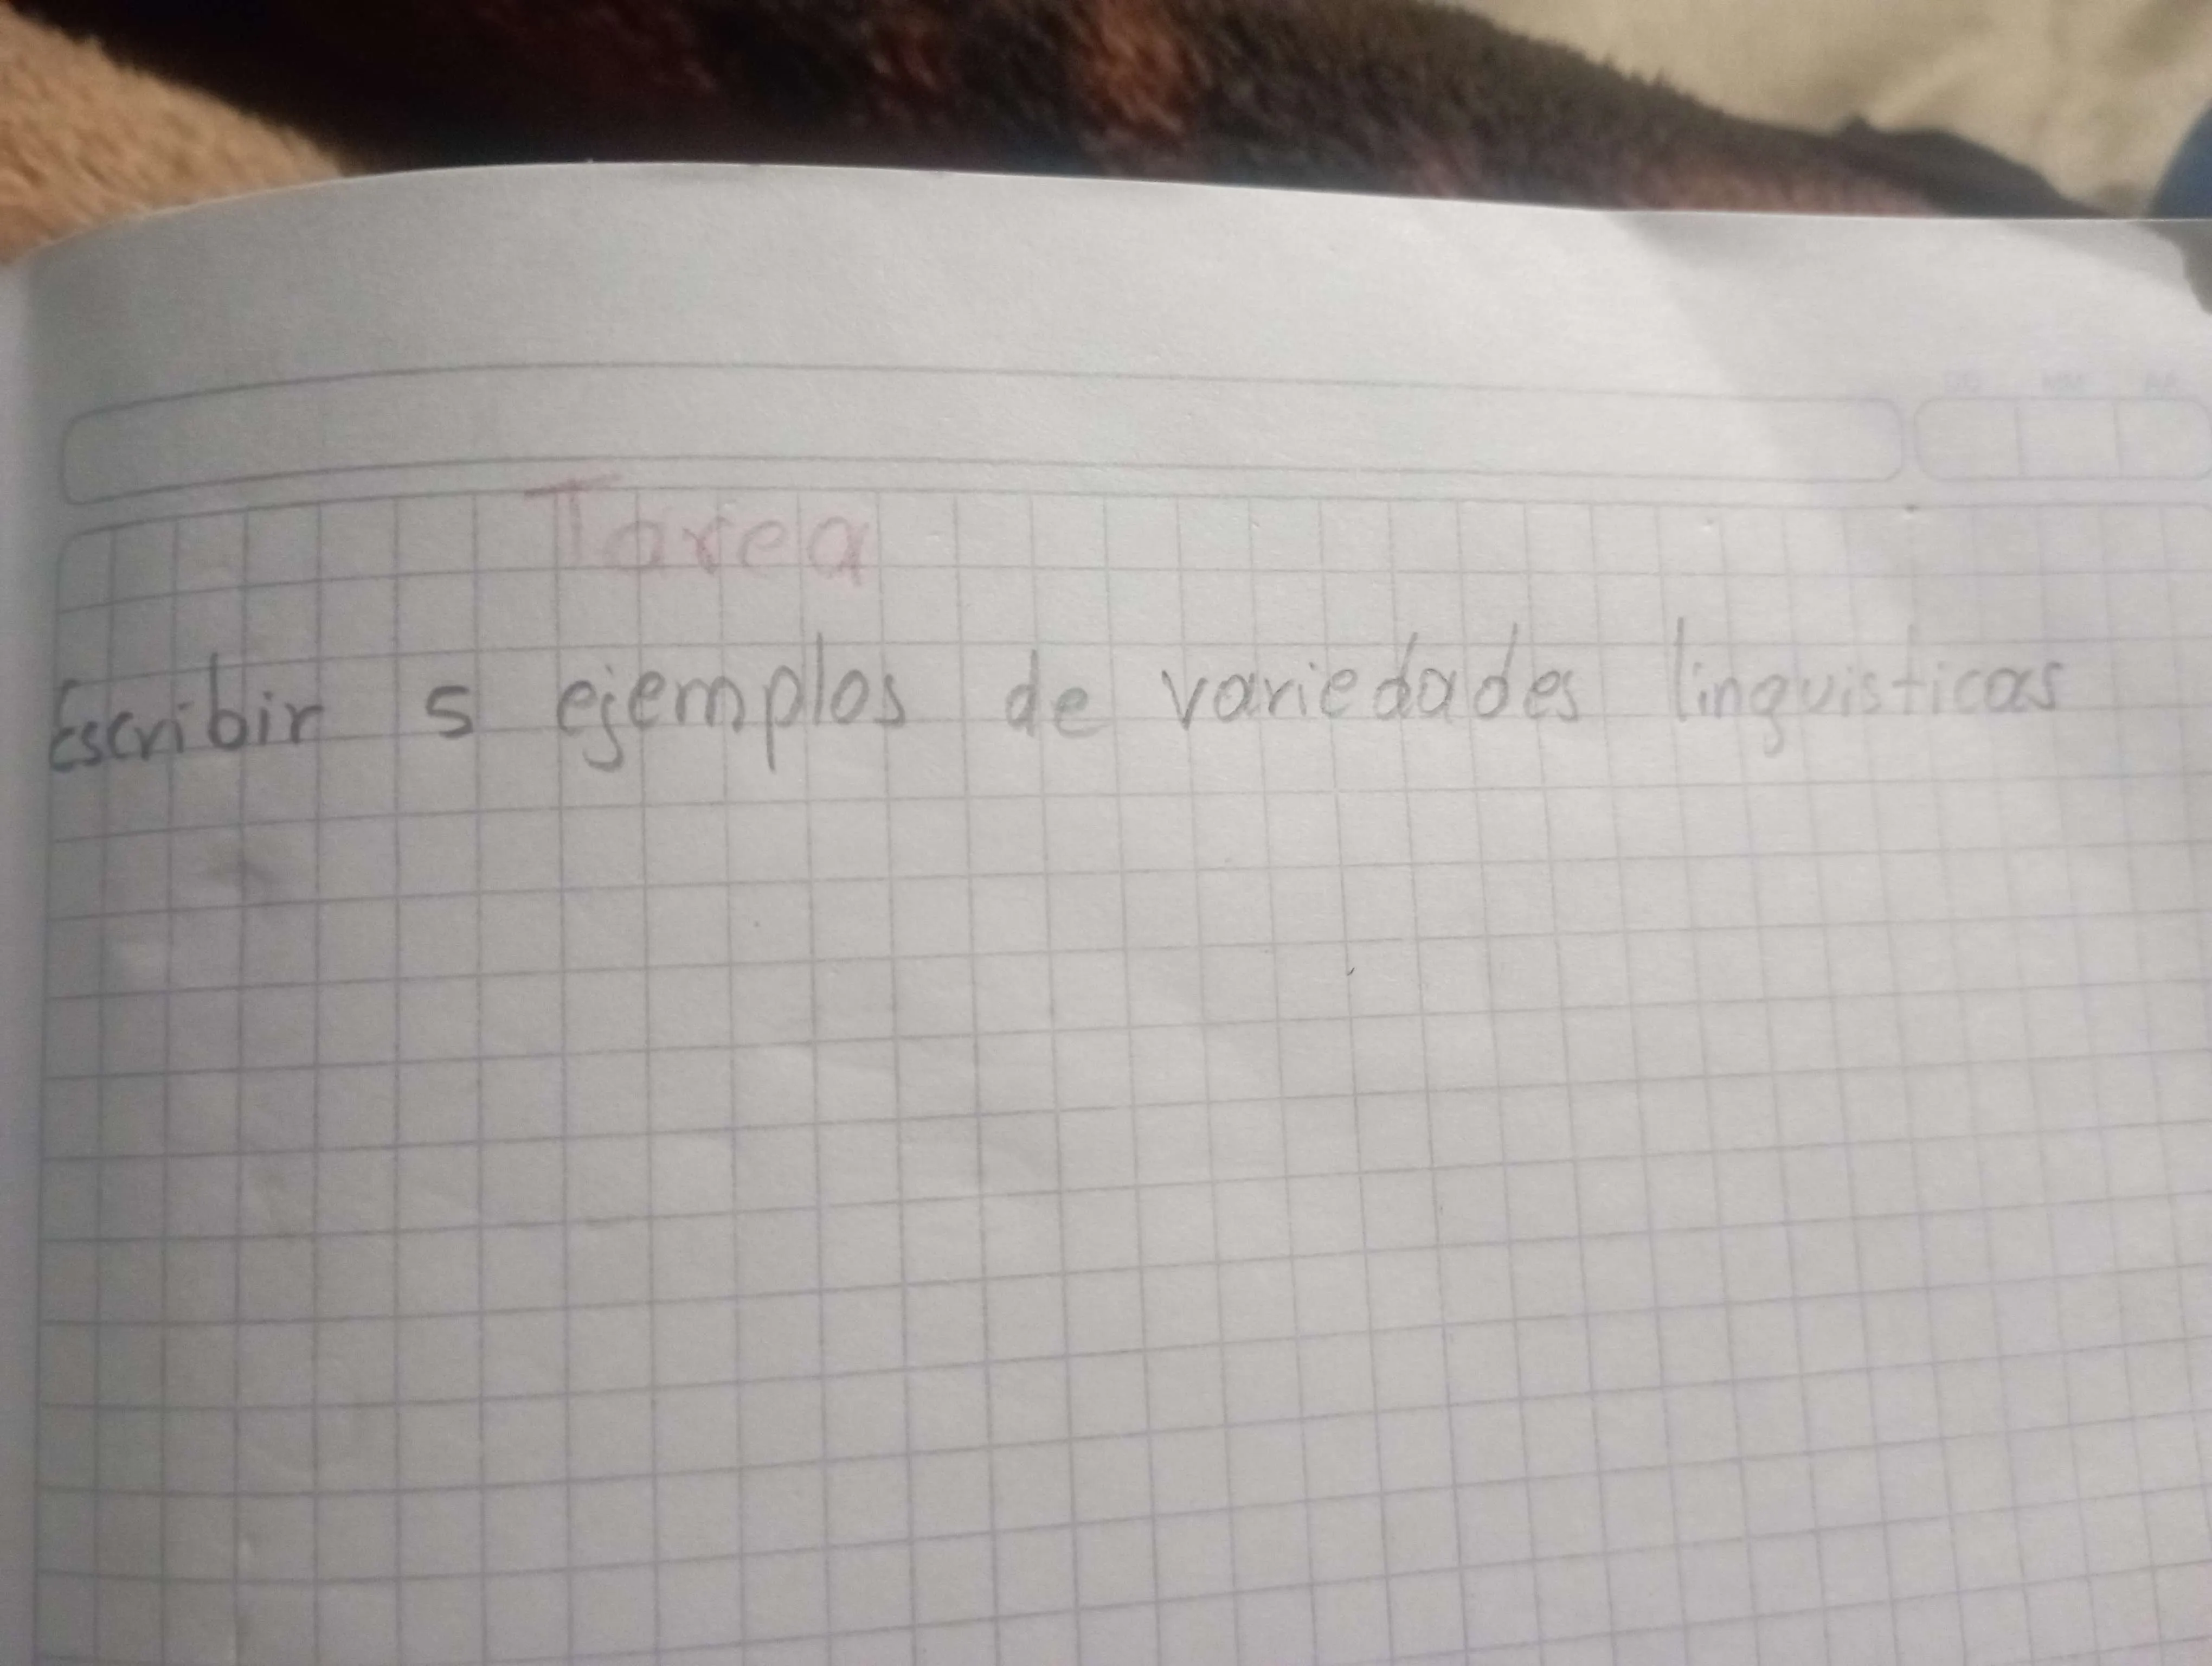 Tarea
Escribir 5 ejemplos de variedades linguisticas